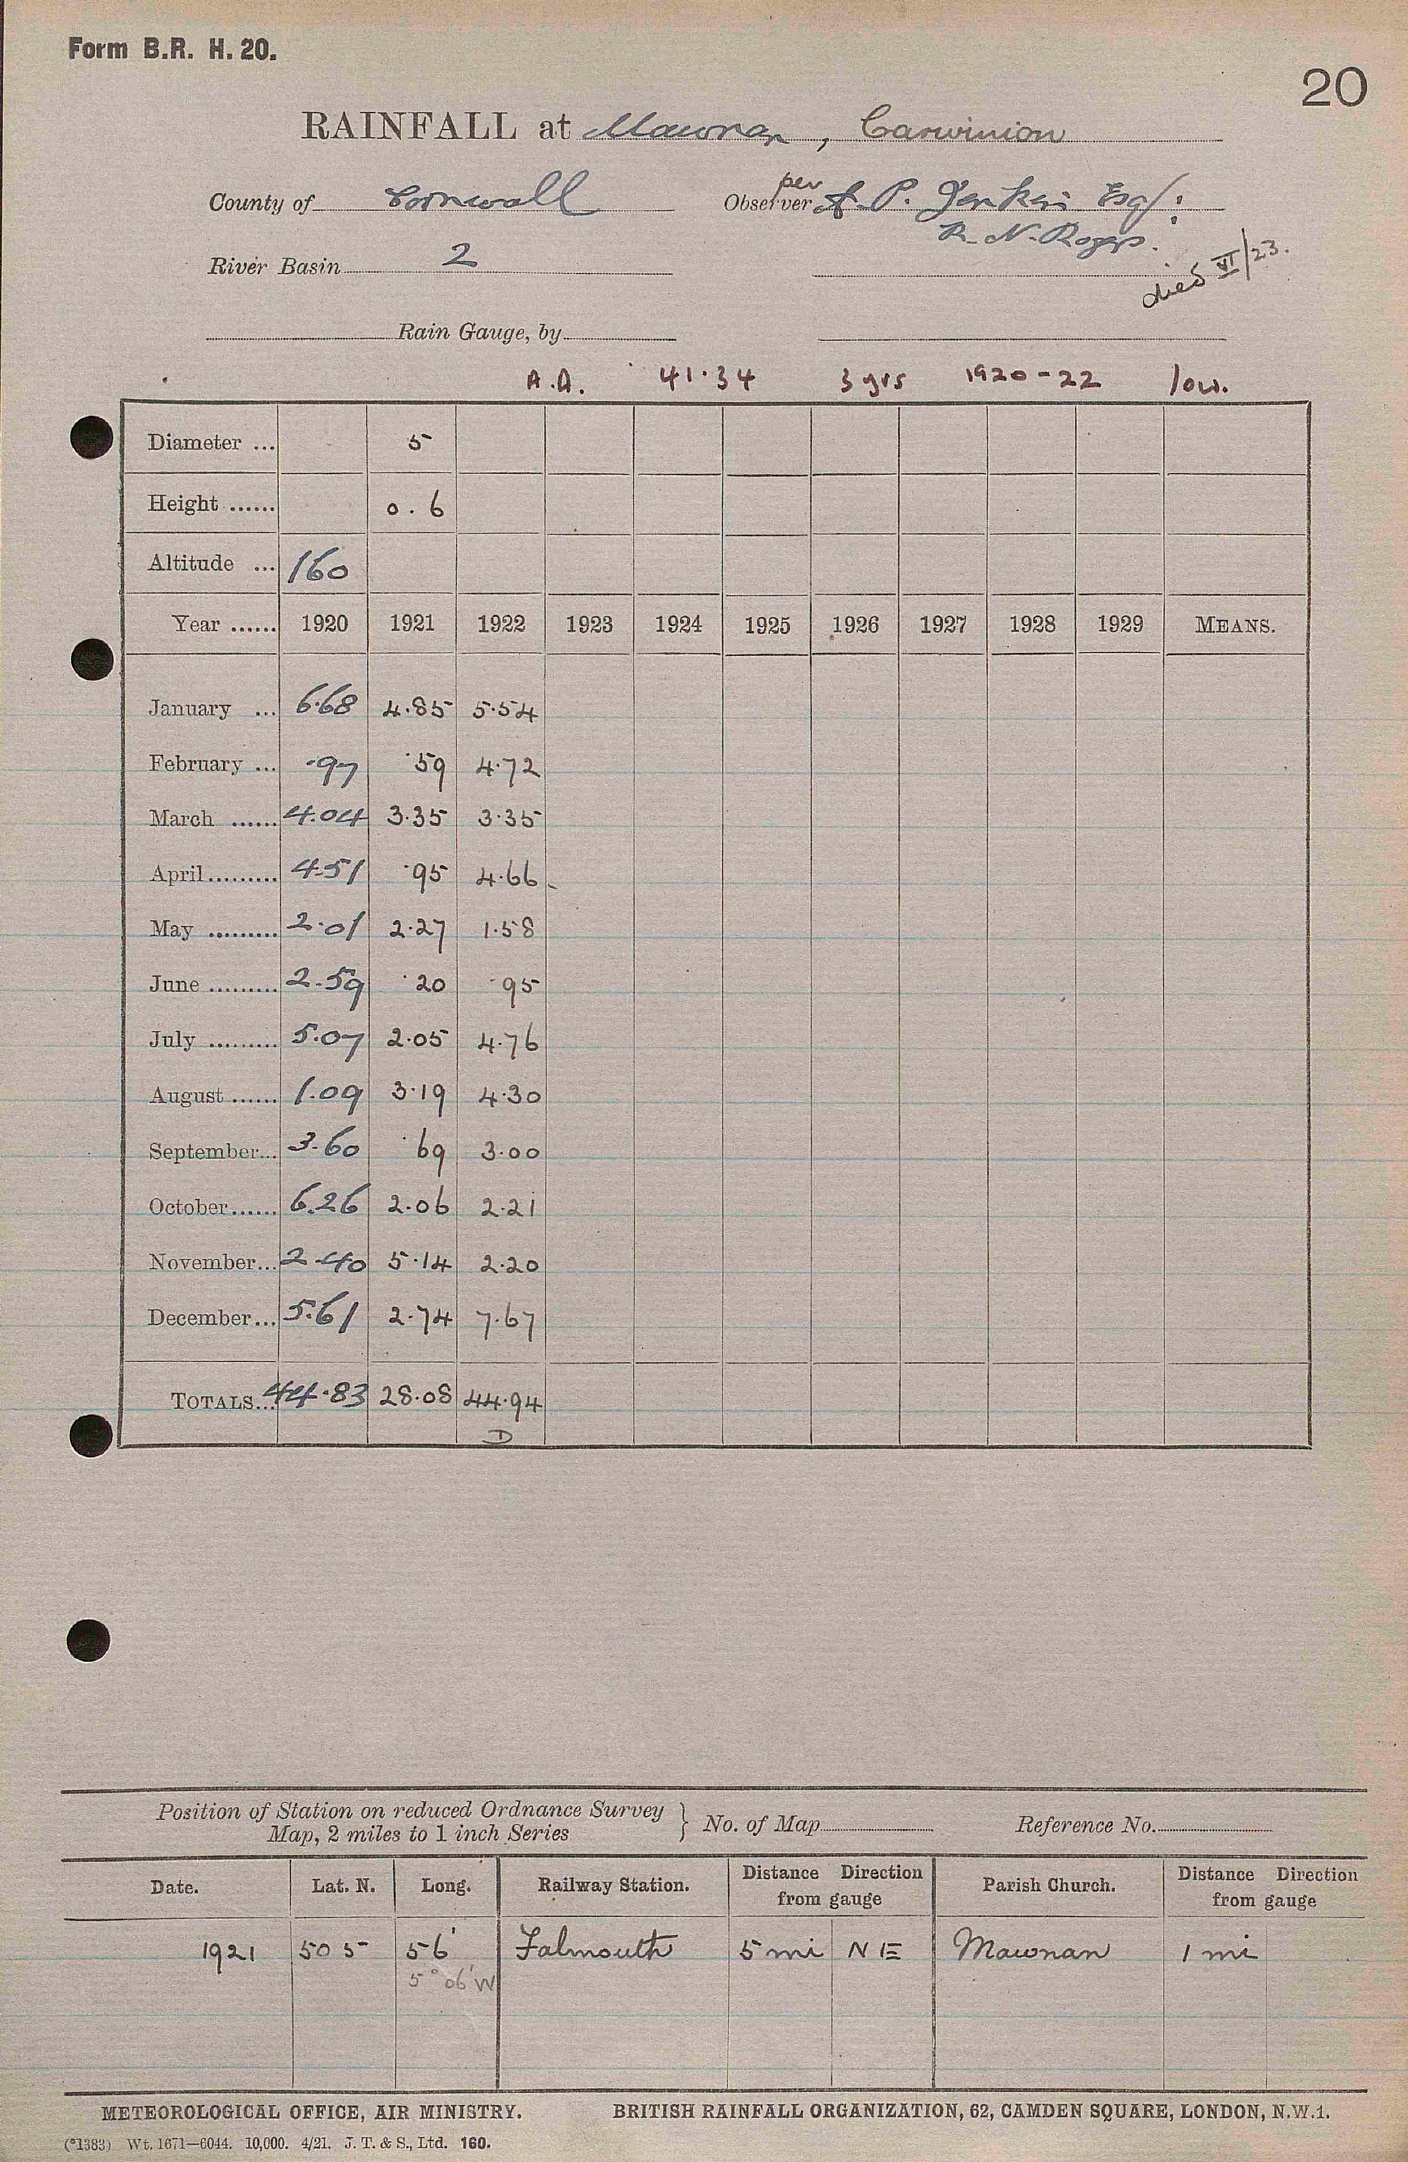 Form B.R. H. 20.
20
RAINFALL at Mawnan, Carwinion
County of Cornwall Observer per A. P. Jenkin Esq:
R. N. Rogers.
River Basin 2
died VI/23.
Rain Gauge, by
A.A. 41.34 3 yrs 1920-22 low.
Diameter ... 5
Height ...... 0.6
Altitude ... 160
Year ...... 1920 1921 1922 1923 1924 1925 1926 1927 1928 1929 MEANS.
January ... 6.68 4.85 5.54
February ... .97 .59 4.72
March ...... 4.04 3.35 3.35
April ......... 4.51 .95 4.66
May ......... 2.01 2.27 1.58
June ......... 2.59 .20 .95
July ......... 5.07 2.05 4.76
August ...... 1.09 3.19 4.30
September... 3.60 .69 3.00
October...... 6.26 2.06 2.21
November... 2.40 5.14 2.20
December... 5.61 2.74 7.67
TOTALS... 44.83 28.08 44.94
D
Position of Station on reduced Ordnance Survey
Map, 2 miles to 1 inch Series } No. of Map Reference No.
Date. Lat. N. Long. Railway Station. Distance Direction from gauge Parish Church. Distance Direction from gauge
1921 50 5 5 6' Falmouth 5 mi NE Mawnan 1 mi
5° 06' W
METEOROLOGICAL OFFICE, AIR MINISTRY. BRITISH RAINFALL ORGANIZATION, 62, CAMDEN SQUARE, LONDON, N.W.1.
(*1383) Wt. 1671—6044. 10,000. 4/21. J. T. & S., Ltd. 160.